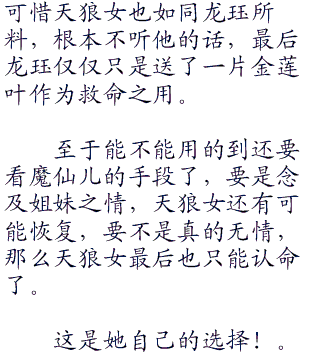 可惜天狼女也如同龙珏所
料，根本不听他的话，最后
龙珏仅仅只是送了一片金莲
叶作为救命之用。
至于能不能用的到还要
看魔仙儿的手段了，要是念
及姐妹之情，天狼女还有可
能恢复，要不是真的无情，
那么天狼女最后也只能认命
了。
这是她自己的选择！。